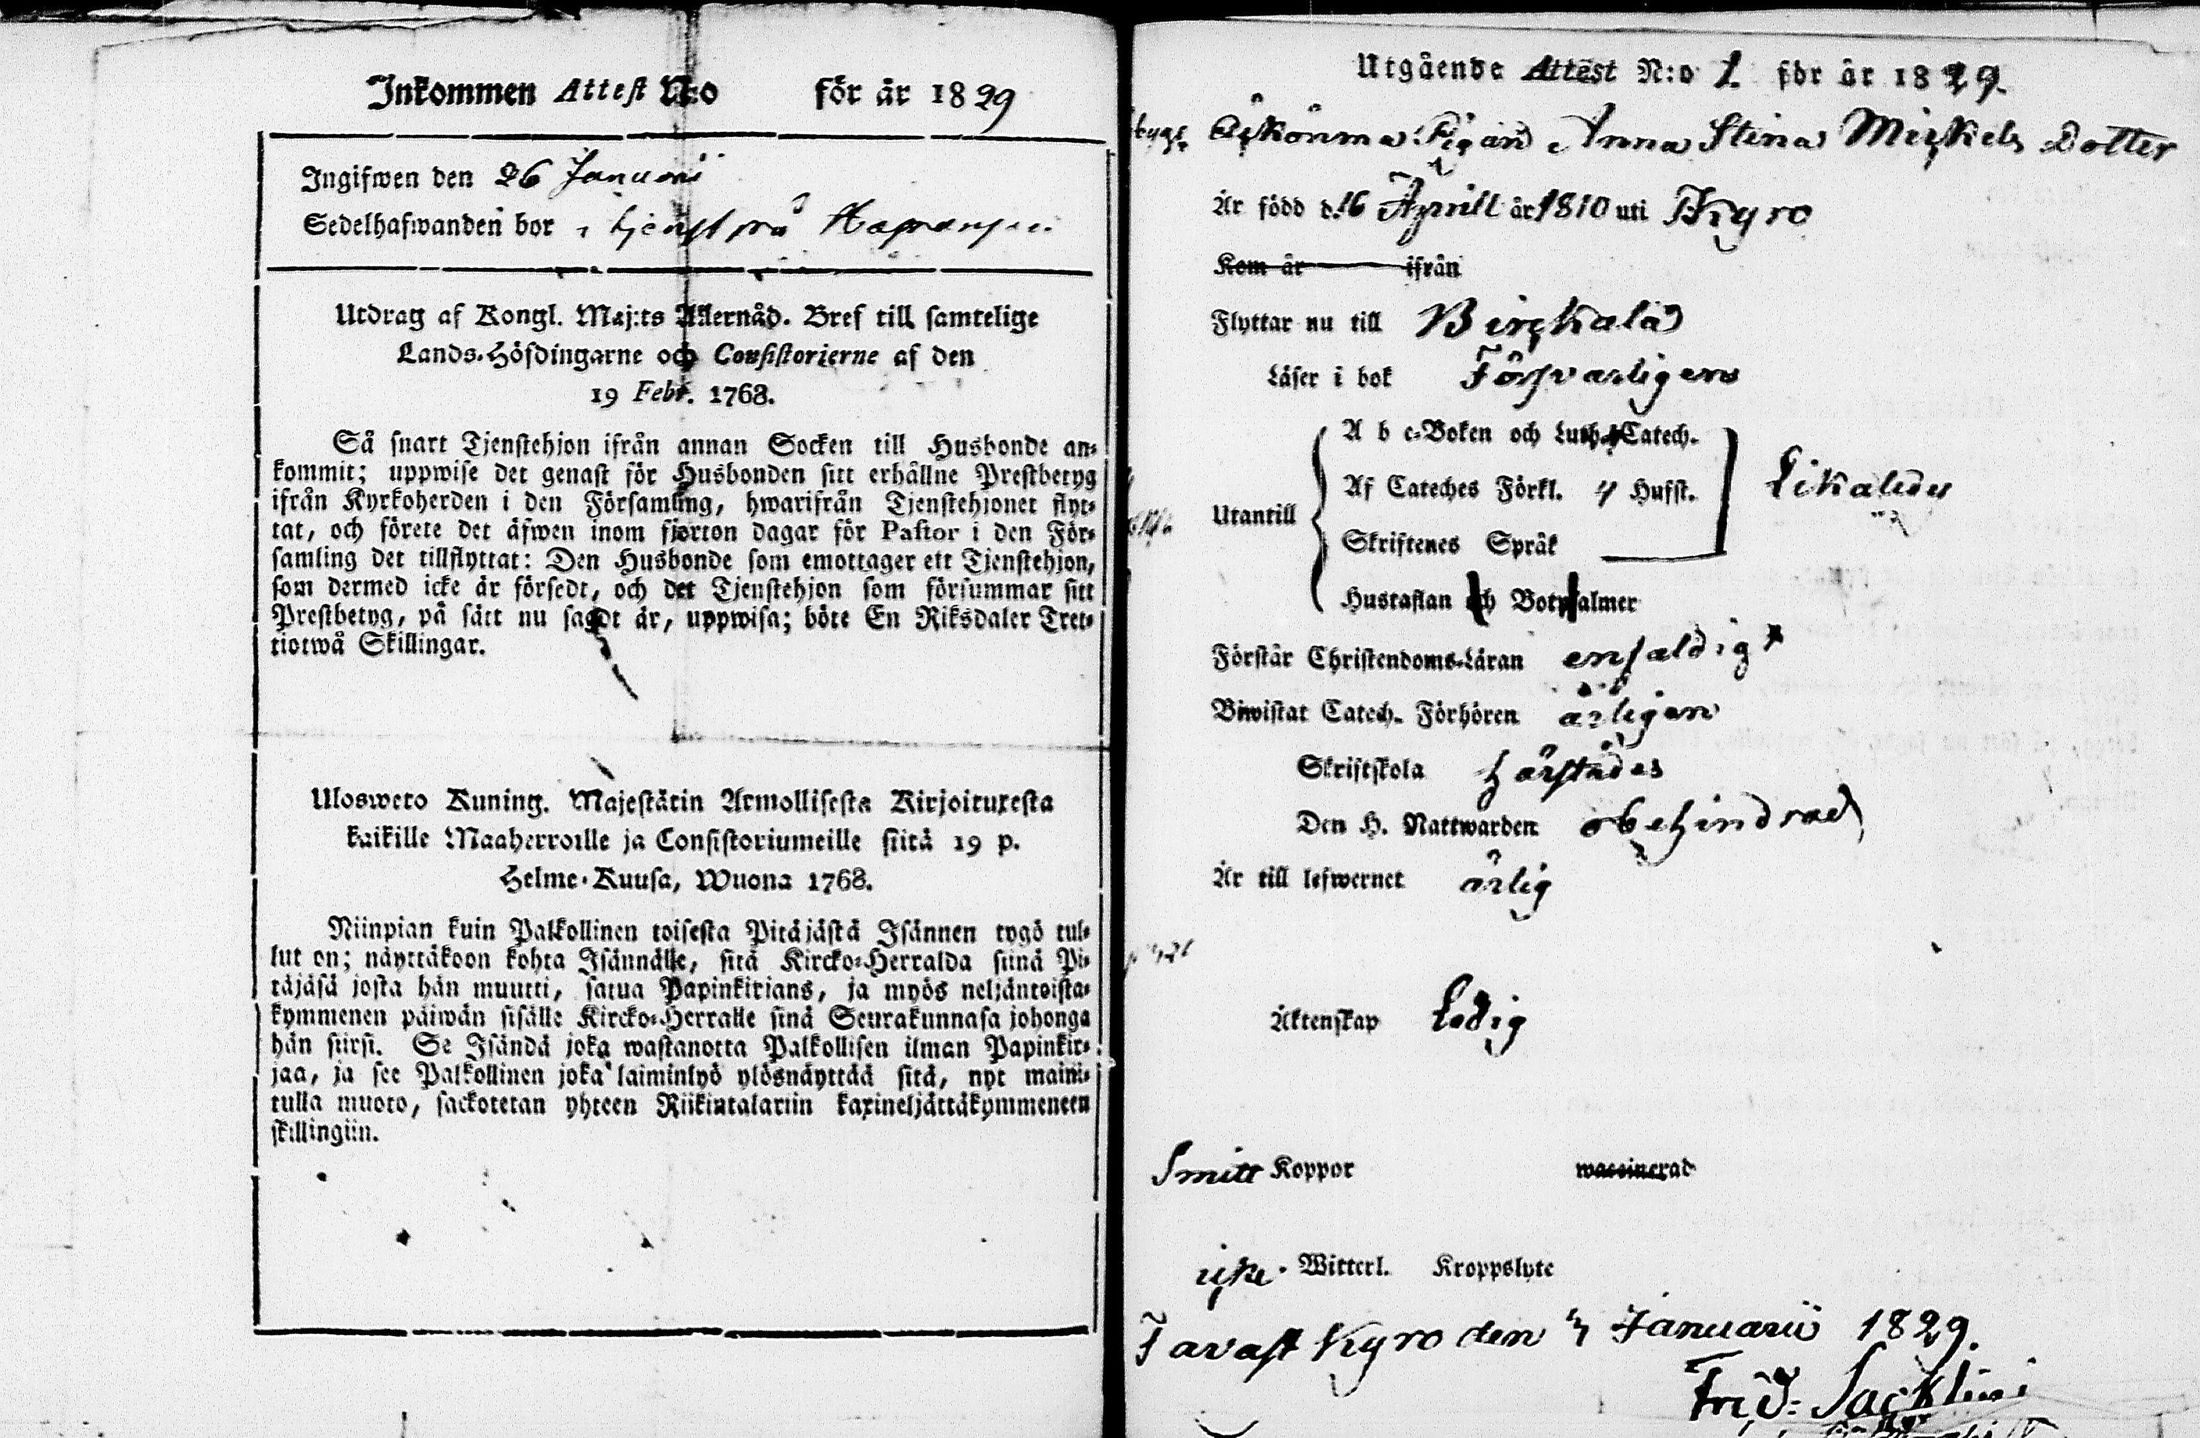 Inkommen Attest N:o för år 1829
Ingifwen den 26 Januarii
Sedelhafwanden bor i tjenst på
Utdrag af Kongl. Maj:ts Allernåd. Bref till samtelige
Lands-Höfdingarne och Consistorierne af den
19 Febr. 1768.
Så snart Tjenstehjon ifrån annan Socken till Husbonde an-
kommit; uppwise det genast för Husbonden sitt erhållne Prestbetyg
ifrån Kyrkoherden i den Församling, hwarifrån Tjenstehjonet flyt-
tat, och förete det äfwen inom fjorton dagar för Pastor i den För-
samling det tillflyttat: Den Husbonde som emottager ett Tjenstehjon,
som dermed icke är försedt, och det Tjenstehjon som försummar sitt
Prestbetyg, på sätt nu sagdt är, uppwisa; böte En Riksdaler Tret-
tiotwå Skillingar.
Ulosweto Kuning. Majestätin Armollisesta Kirjoituxesta
kaikille Maaherroille ja Consistoriumeille siitä 19 p.
Helme-Kuusa, Wuona 1768.
Niinpian kuin Palkollinen toisesta Pitäjästä Isännen tygö tul-
lut on; näyttäkoon kohta Isännälle, sitä Kircko-Herralda siinä Pi-
täjäsä josta hän muutti, satua Papinkirjans, ja myös neljäntoista-
kymmenen päiwän sisälle Kircko-Herralle sinä Seurakunnasa johonga
hän siirsi. Se Isändä joka wastanotta Palkollisen ilman Papinkir-
jaa, ja see Palkollinen joka laiminlyö ylösnäyttää sitä, nyt maini-
tulla muoto, sackotetan yhteen Riikintalariin kaxineljättäkymmeneen
skillingiin.
Utgående Attest N:o 1. för år 1829.
Pigan Anna Stina Mickels Dotter
Är född d. 16 Aprill år 1810 uti Kyro
Kom år ifrån
Flyttar nu till Birckala
Läser i bok Försvarligen
A b c-Boken och Luth. Catech.
Af Cateches Förkl. 4 Hufst. Likaledes
Utantill
Skriftenes Språk
Hustaflan och Botpsalmer
Förstår Christendoms-Läran enfaldigt
Biwistat Catech. Förhören årligen
Skriftskola härstädes
Den H. Nattwarden obehindrad
Är till lefwernet ärlig
Äktenskap Ledig
Smitt Koppor waccinerad
icke. Witterl. Kroppslyte
Tavast Kyro den 4 Januarii 1829.
Frid: